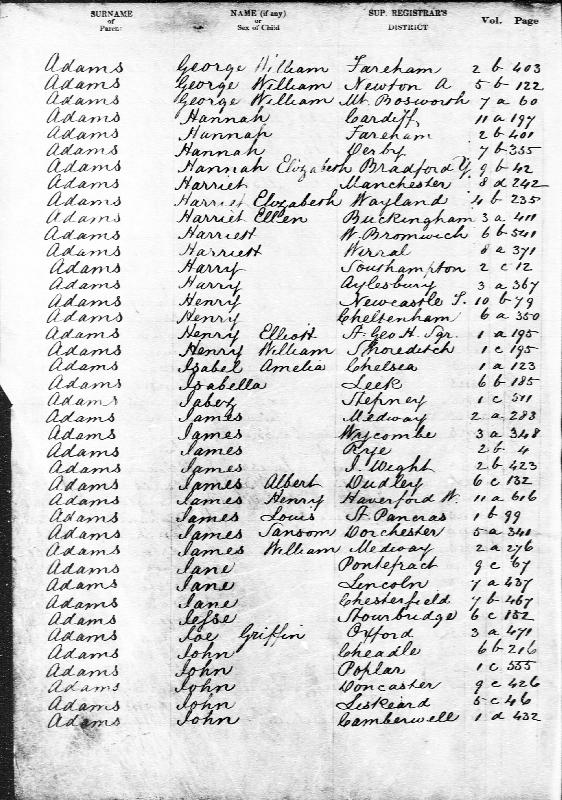 SURNAME or Parent NAME (if any) or Sex of Child SUP. REGISTRAR'S DISTRICT Vol. Page
Adams George William Fareham 2 b 403
Adams George William Newton A 5 b 122
Adams George William Mt. Bosworth 7 a 60
Adams Hannah Cardiff 11 a 197
Adams Hannah Fareham 2 b 401
Adams Hannah Derby 7 b 355
Adams Hannah Elizabeth Bradford Y. 9 b 42
Adams Harriet Manchester 8 d 242
Adams Harriet Elizabeth Wayland 4 b 235
Adams Harriet Ellen Buckingham 3 a 411
Adams Harriett W. Bromwich 6 b 541
Adams Harriett Wirral 8 a 371
Adams Harry Southampton 2 c 12
Adams Harry Aylesbury 3 a 367
Adams Henry Newcastle T. 10 b 79
Adams Henry Cheltenham 6 a 350
Adams Henry Elliott St. Geo H. Sqr. 1 a 195
Adams Henry William Shoreditch 1 c 195
Adams Isabel Amelia Chelsea 1 a 123
Adams Isabella Leek 6 b 185
Adams Jabez Stepney 1 c 511
Adams James Medway 2 a 283
Adams James Wycombe 3 a 348
Adams James Rye 2 b 4
Adams James I. Wight 2 b 423
Adams James Albert Dudley 6 c 132
Adams James Henry Haverford W. 11 a 616
Adams James Louis St. Pancras 1 b 99
Adams James Sansom Dorchester 5 a 341
Adams James William Medway 2 a 276
Adams Jane Pontefract 9 c 67
Adams Jane Lincoln 7 a 437
Adams Jane Chesterfield 7 b 467
Adams Jesse Stourbridge 6 c 152
Adams Joe Griffin Oxford 3 a 471
Adams John Cheadle 6 b 216
Adams John Poplar 1 c 555
Adams John Doncaster 9 c 426
Adams John Liskeard 5 c 46
Adams John Camberwell 1 d 432